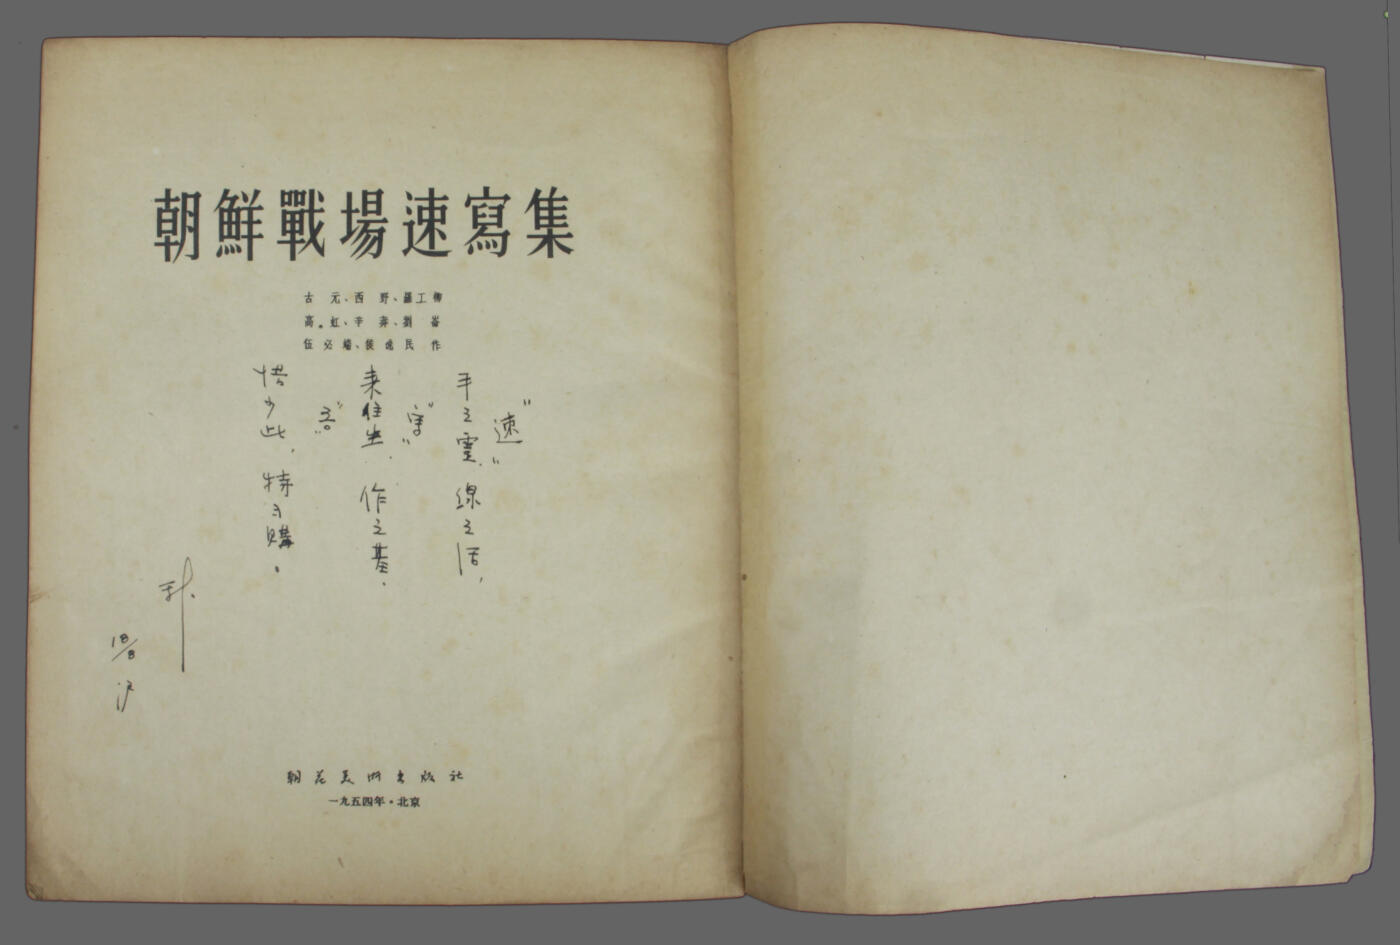 朝鮮戰場速寫集
古元、西野、羅工柳
高虹、辛莽、劉崙
伍必端、侯逸民作
"速"
手之靈、線之活，
"写"
来往坐、作之基．
"言"
惜少此，特为購。
18/8 沪
朝花美術出版社
一九五四年·北京